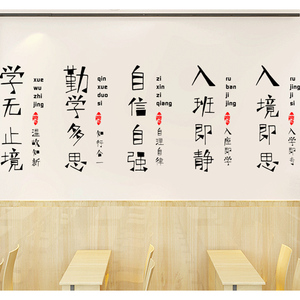 学无止境
xue
wu
zhi
jing
温故知新
勤学多思
qin
xue
duo
si
知行合一
自信自强
zi
xin
zi
qiang
自理自律
入班即静
ru
ban
ji
jing
入座即学
入境即思
ru
jing
ji
si